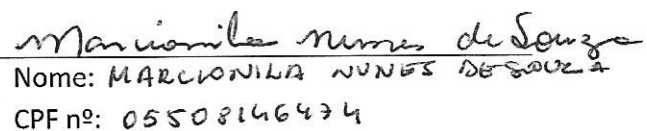 Marcionila Nunes de Souza
Nome: MARCIONILA NUNES DE SOUZA
CPF nº: 05508146474